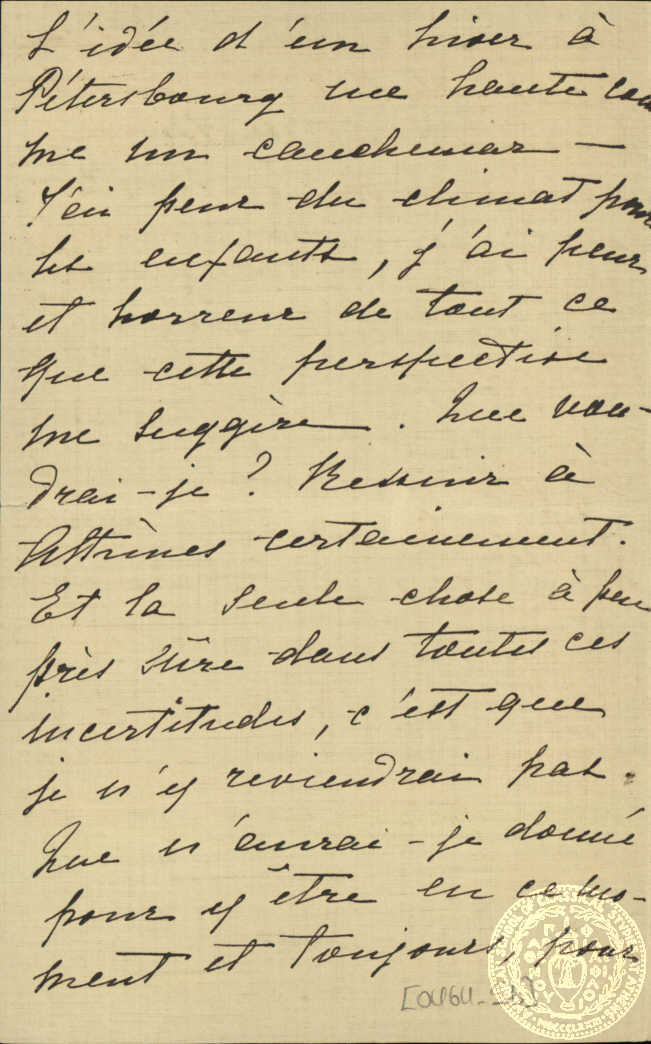 L'idée d'un hiver à
Pétersbourg me hante com
me un cauchemar —
J'ai peur du climat pour
les enfants, j'ai peur
et horreur de tout ce
que cette perspective
me suggère. Que vou-
drai-je? Revenir à
Athènes certainement.
Et la seule chose à peu
près sûre dans toutes ces
incertitudes, c'est que
je n'y reviendrai pas.
Que n'aurai-je donné
pour y être en ce mo-
ment et toujours, pour